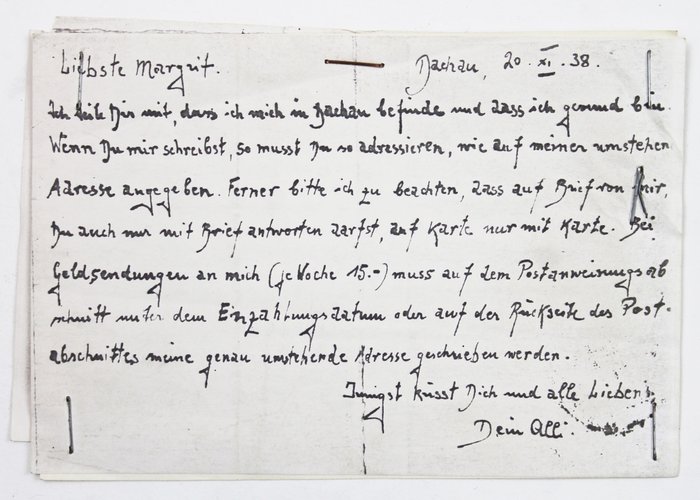 Liebste Margrit. Dachau, 20. XI. 38.
Ich teile Dir mit, dass ich mich in Dachau befinde und dass ich gesund bin.
Wenn Du mir schreibst, so musst Du so adrassieren, wie auf meiner umstehen
Adresse angegeben. Ferner bitte ich zu beachten, dass auf Brief von mir,
Du auch nur mit Brief antworten darfst, auf Karte nur mit Karte. Bei
Geldsendungen an mich (je Woche 15.-) muss auf dem Postanweisungsab
schnitt unter dem Einzahlungsdatum oder auf der Rückseite des Post-
abschnittes meine genau umstehende Adresse geschrieben werden.
Innigst küsst Dich und alle Lieben
Dein Alli.